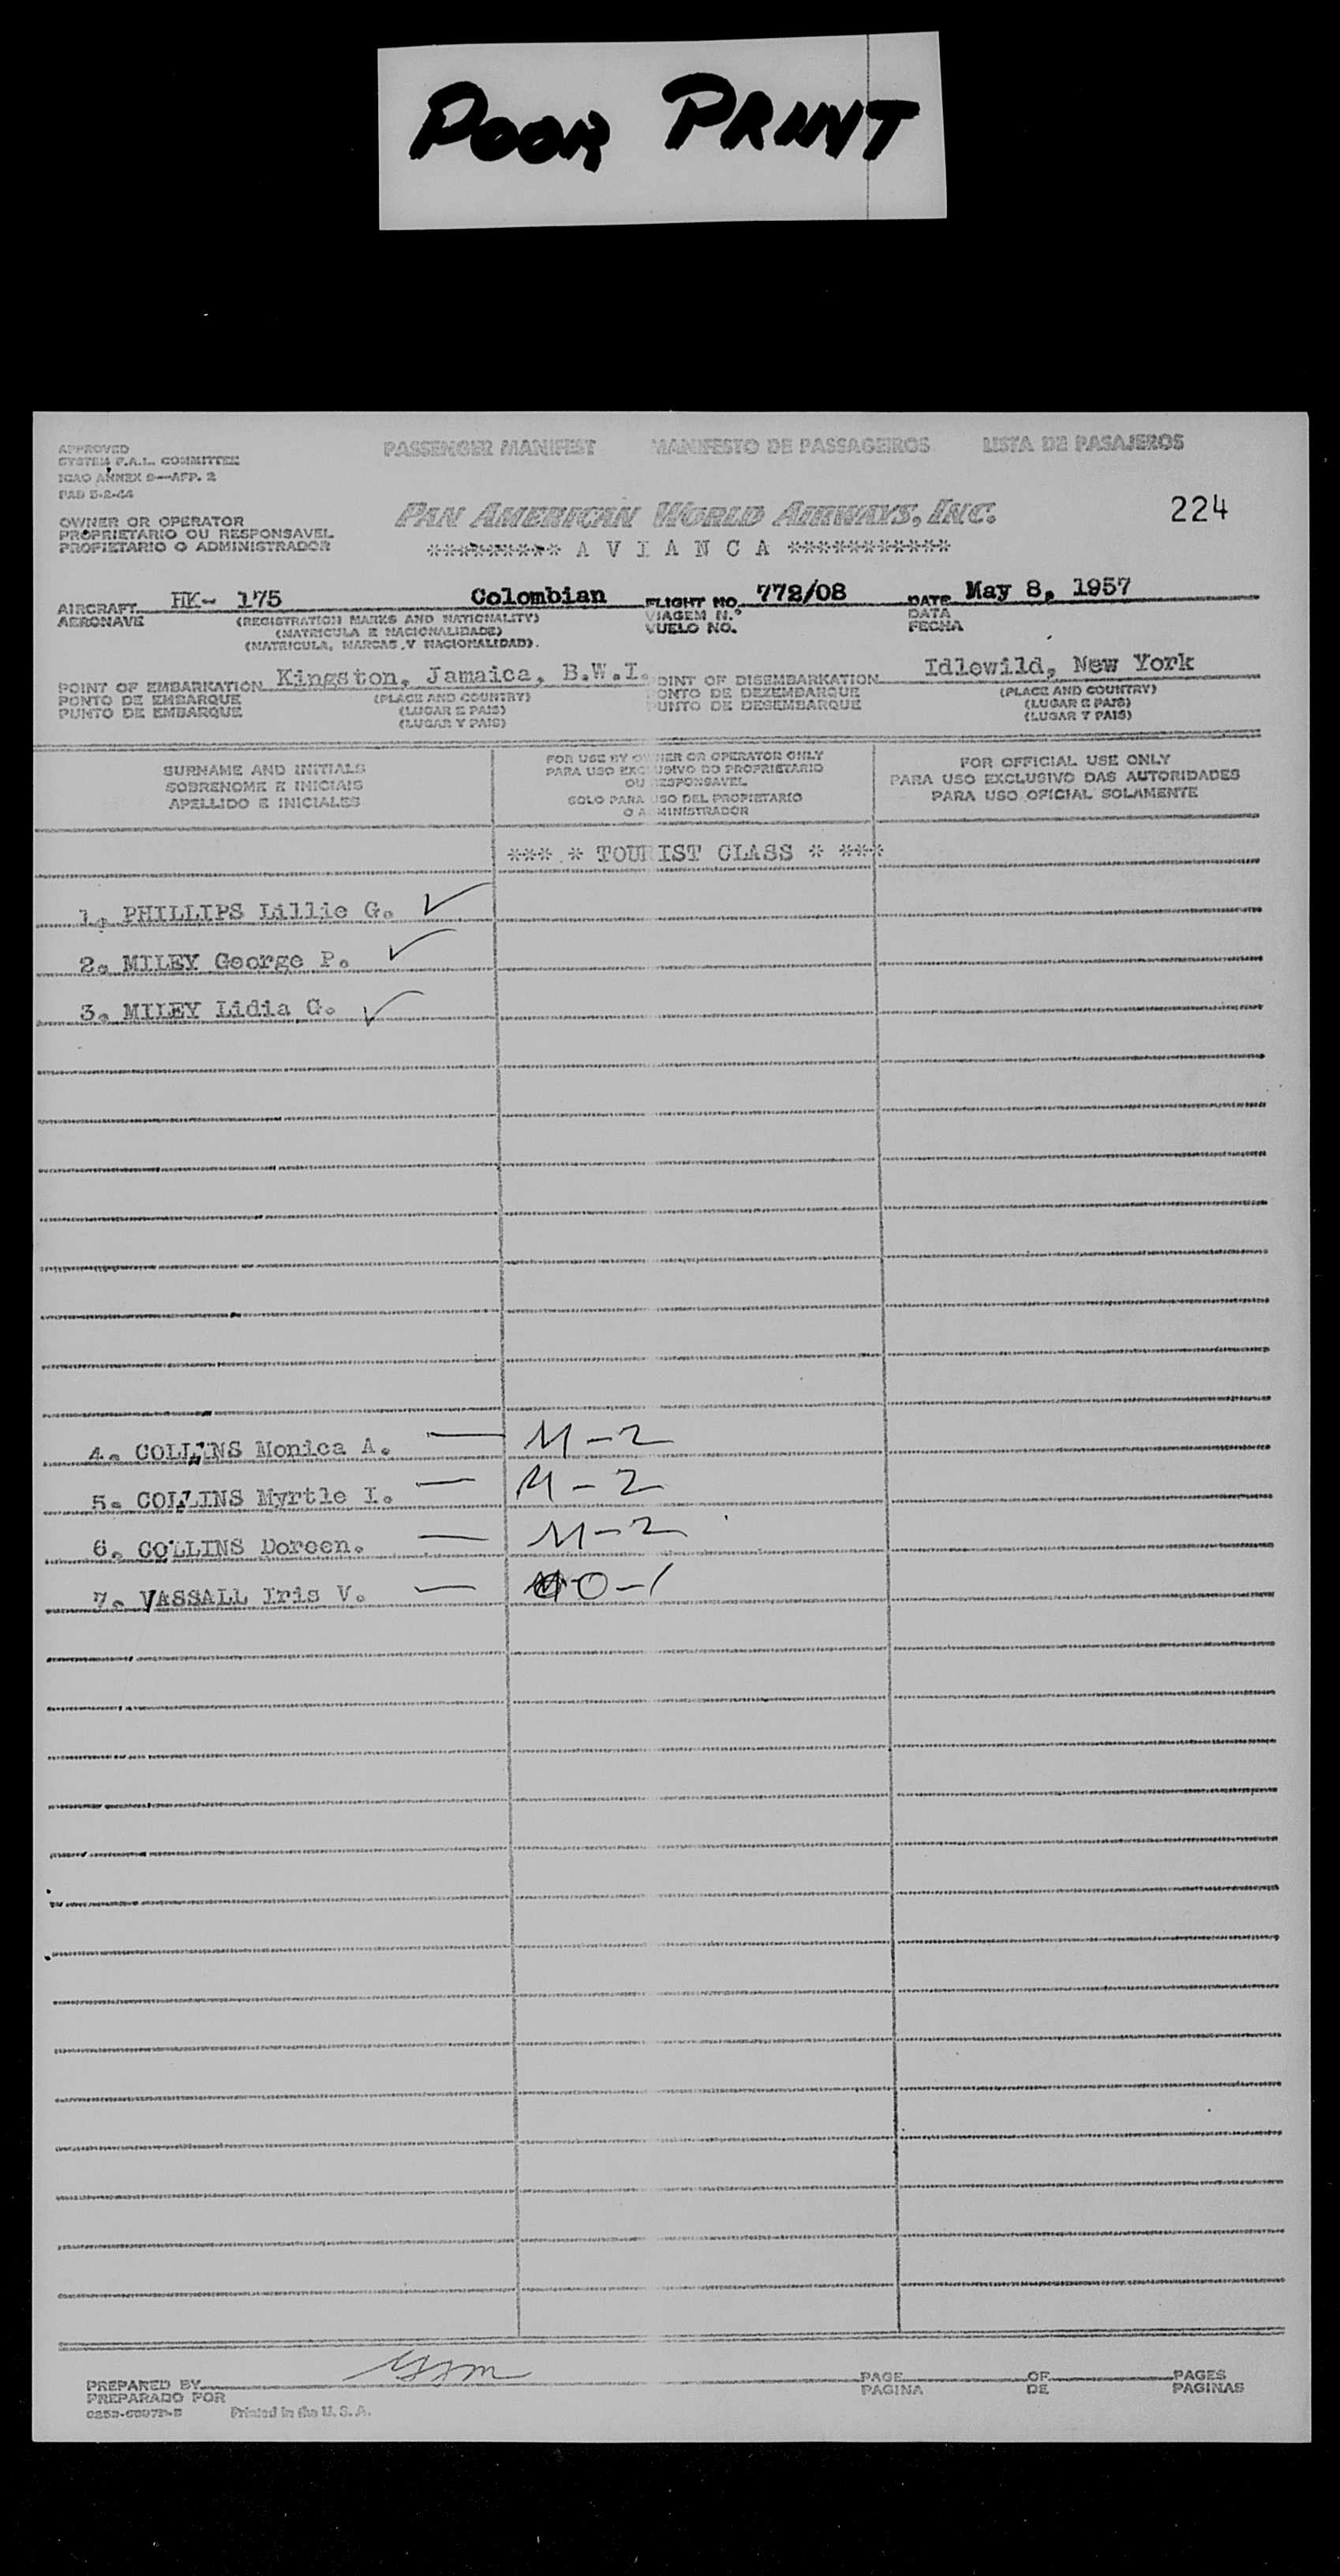 POOR PRINT
APPROVED
SYSTEM F.A.L. COMMITTEE
ICAO ANNEX 9—APP. 2
PAD 5-2-44
PASSENGER MANIFEST MANIFESTO DE PASSAGEIROS LISTA DE PASAJEROS
224
OWNER OR OPERATOR
PROPRIETARIO OU RESPONSAVEL
PROPIETARIO O ADMINISTRADOR
PAN AMERICAN WORLD AIRWAYS, INC.
********* A V I A N C A ***********
AIRCRAFT HK- 175 Colombian FLIGHT NO. 772/08 DATE May 8, 1957
AERONAVE (REGISTRATION MARKS AND NATIONALITY) VIAGEM N.º DATA
(MATRICULA E NACIONALIDADE) VUELO NO. FECHA
(MATRICULA, MARCAS Y NACIONALIDAD).
POINT OF EMBARKATION Kingston, Jamaica, B.W.I. OINT OF DISEMBARKATION Idlewild, New York
PONTO DE EMBARQUE (PLACE AND COUNTRY) ONTO DE DEZEMBARQUE (PLACE AND COUNTRY)
PUNTO DE EMBARQUE (LUGAR E PAIS) UNTO DE DESEMBARQUE (LUGAR E PAIS)
(LUGAR Y PAIS) (LUGAR Y PAIS)
SURNAME AND INITIALS
SOBRENOME E INICIAIS
APELLIDO E INICIALES
FOR USE BY OWNER OR OPERATOR ONLY
PARA USO EXCLUSIVO DO PROPRIETARIO
OU RESPONSAVEL
SOLO PARA USO DEL PROPIETARIO
O ADMINISTRADOR
FOR OFFICIAL USE ONLY
PARA USO EXCLUSIVO DAS AUTORIDADES
PARA USO OFICIAL SOLAMENTE
*** * TOURIST CLASS * ***
1. PHILLIPS Lillie G. ✓
2. MILEY George P. ✓
3. MILEY Lidia G. ✓
4. COLLINS Monica A. — M-2
5. COLLINS Myrtle I. — M-2
6. COLLINS Doreen. — M-2
7. VASSALL Iris V. — O-1
PREPARED BY PAGE OF PAGES
PREPARADO POR PAGINA DE PAGINAS
Printed in the U. S. A.